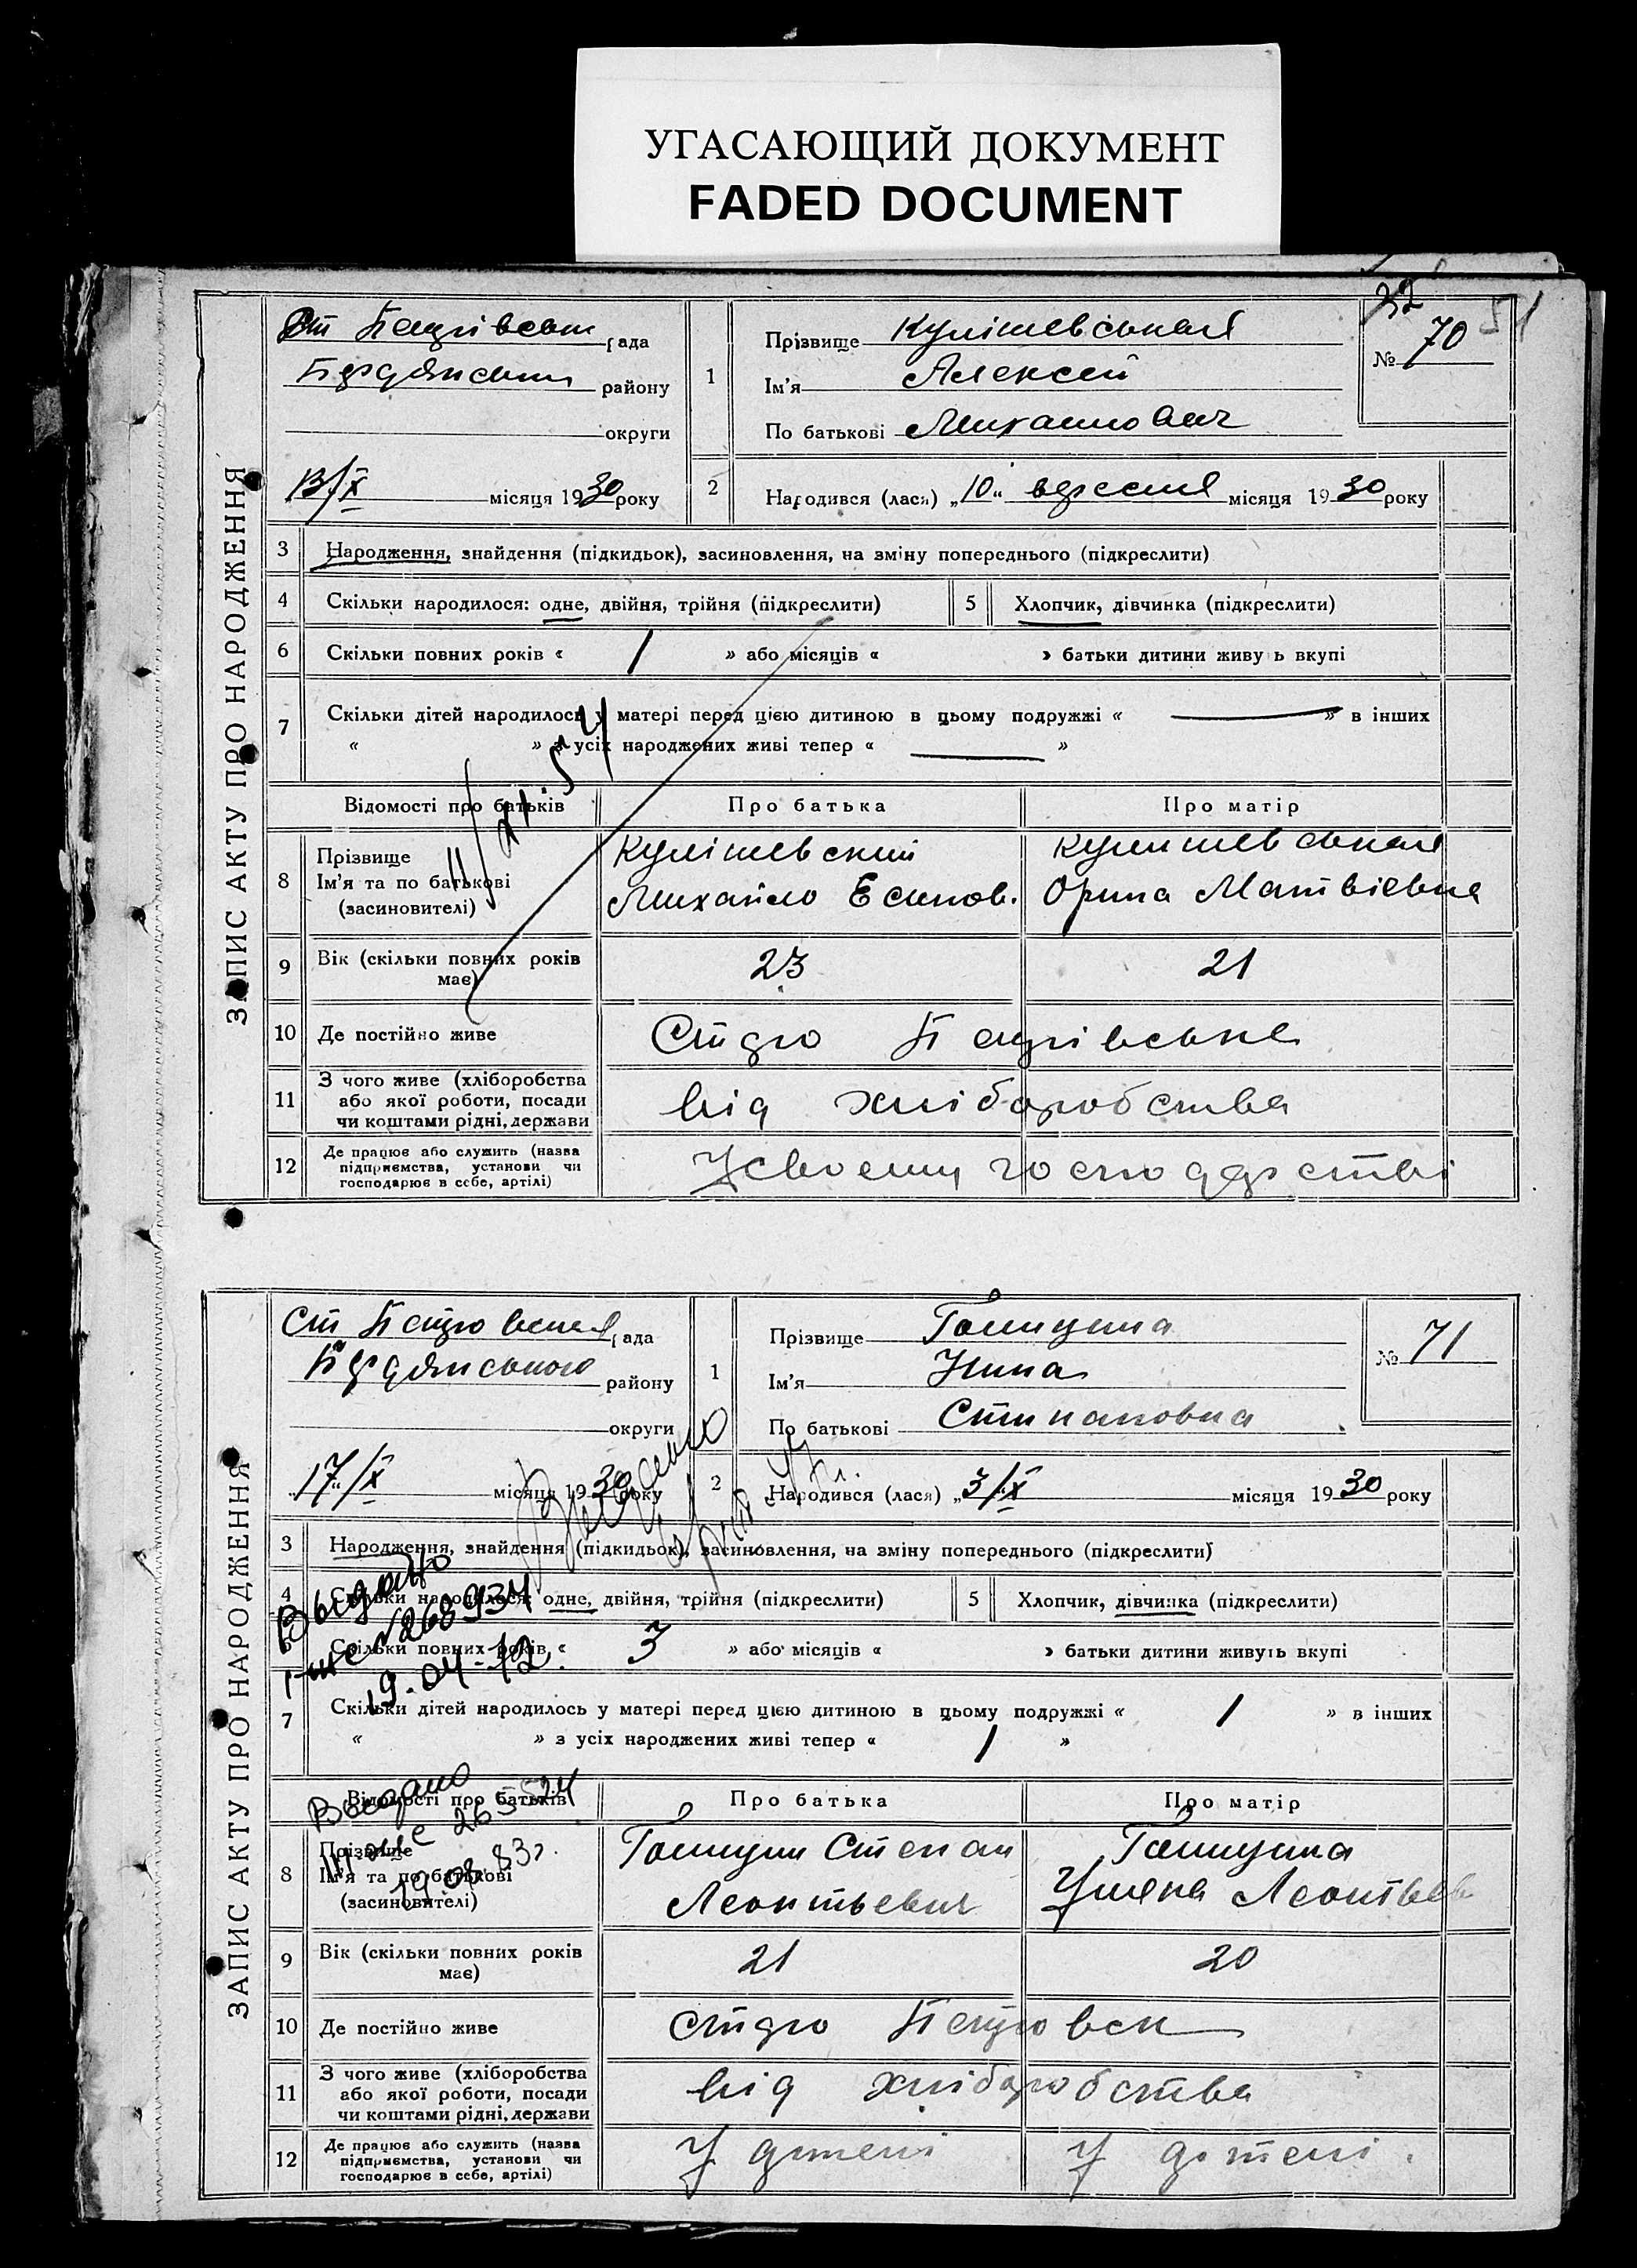 УГАСАЮЩИЙ ДОКУМЕНТ
FADED DOCUMENT
32
51
ЗАПИС АКТУ ПРО НАРОДЖЕННЯ
Ст Петрівськ рада
Бердянськ району
округи
13/IX місяця 1930 року
1
Прізвище Кулішевська
Ім'я Алексей
По батькові Михаилович
№ 70
2
Народився (лася) „10“ вересня місяця 1930 року
3 Народження, знайдення (підкидьок), засиновлення, на зміну попереднього (підкреслити)
4 Скільки народилося: одне, двійня, трійня (підкреслити)
5 Хлопчик, дівчинка (підкреслити)
6 Скільки повних років « 1 » або місяців « » батьки дитини живуть вкупі
7 Скільки дітей народилось у матері перед цією дитиною в цьому подружжі « — » в інших
« » з усіх народжених живі тепер « — »
Відомості про батьків Про батька Про матір
8 Прізвище
Ім'я та по батькові
(засиновителі)
Кулішевский
Михайло Есипов.
Кулишевська
Орина Матвіевна
9 Вік (скільки повних років
має)
23 21
10 Де постійно живе
Петрівське
11 З чого живе (хліборобства
або якої роботи, посади
чи коштами рідні, держави
від хліборобства
12 Де працює або служить (назва
підприємства, установи чи
господарює в себе, артілі)
У своему господарстві
ЗАПИС АКТУ ПРО НАРОДЖЕННЯ
Ст Петровська рада
Бердянського району
округи
„17“/IX місяця 1930 року
1
Прізвище Голицина
Ім'я Нина
По батькові Стипановна
№ 71
2
Народився (лася) „3/IX місяця 1930 року
3 Народження, знайдення (підкидьок), засиновлення, на зміну попереднього (підкреслити)
4 Скільки народилося: одне, двійня, трійня (підкреслити)
5 Хлопчик, дівчинка (підкреслити)
Выдано
№268934
19-04-12.
6 Скільки повних років « 3 » або місяців « » батьки дитини живуть вкупі
7 Скільки дітей народилось у матері перед цією дитиною в цьому подружжі « 1 » в інших
« » з усіх народжених живі тепер « 1 »
Выдано
Відомості про батьків Про батька Про матір
8 Прізвище
Ім'я та по батькові
(засиновителі)
Голицин Степан
Леонтьевич
Голицина
Уляна Леонтьев
9 Вік (скільки повних років
має)
21 20
10 Де постійно живе
Петровск
11 З чого живе (хліборобства
або якої роботи, посади
чи коштами рідні, держави
від хліборобства
12 Де працює або служить (назва
підприємства, установи чи
господарює в себе, артілі)
У артелі У артелі.